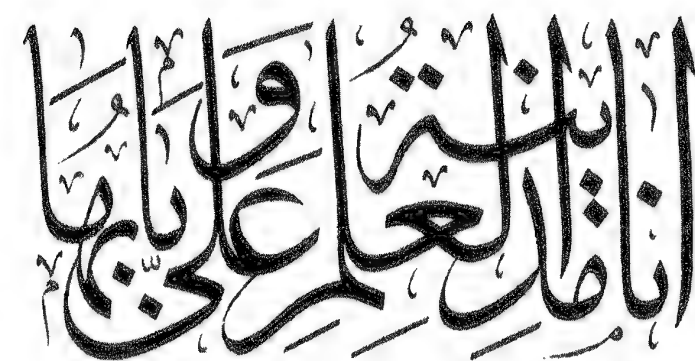 انا مدينة العلم وعلى بابها